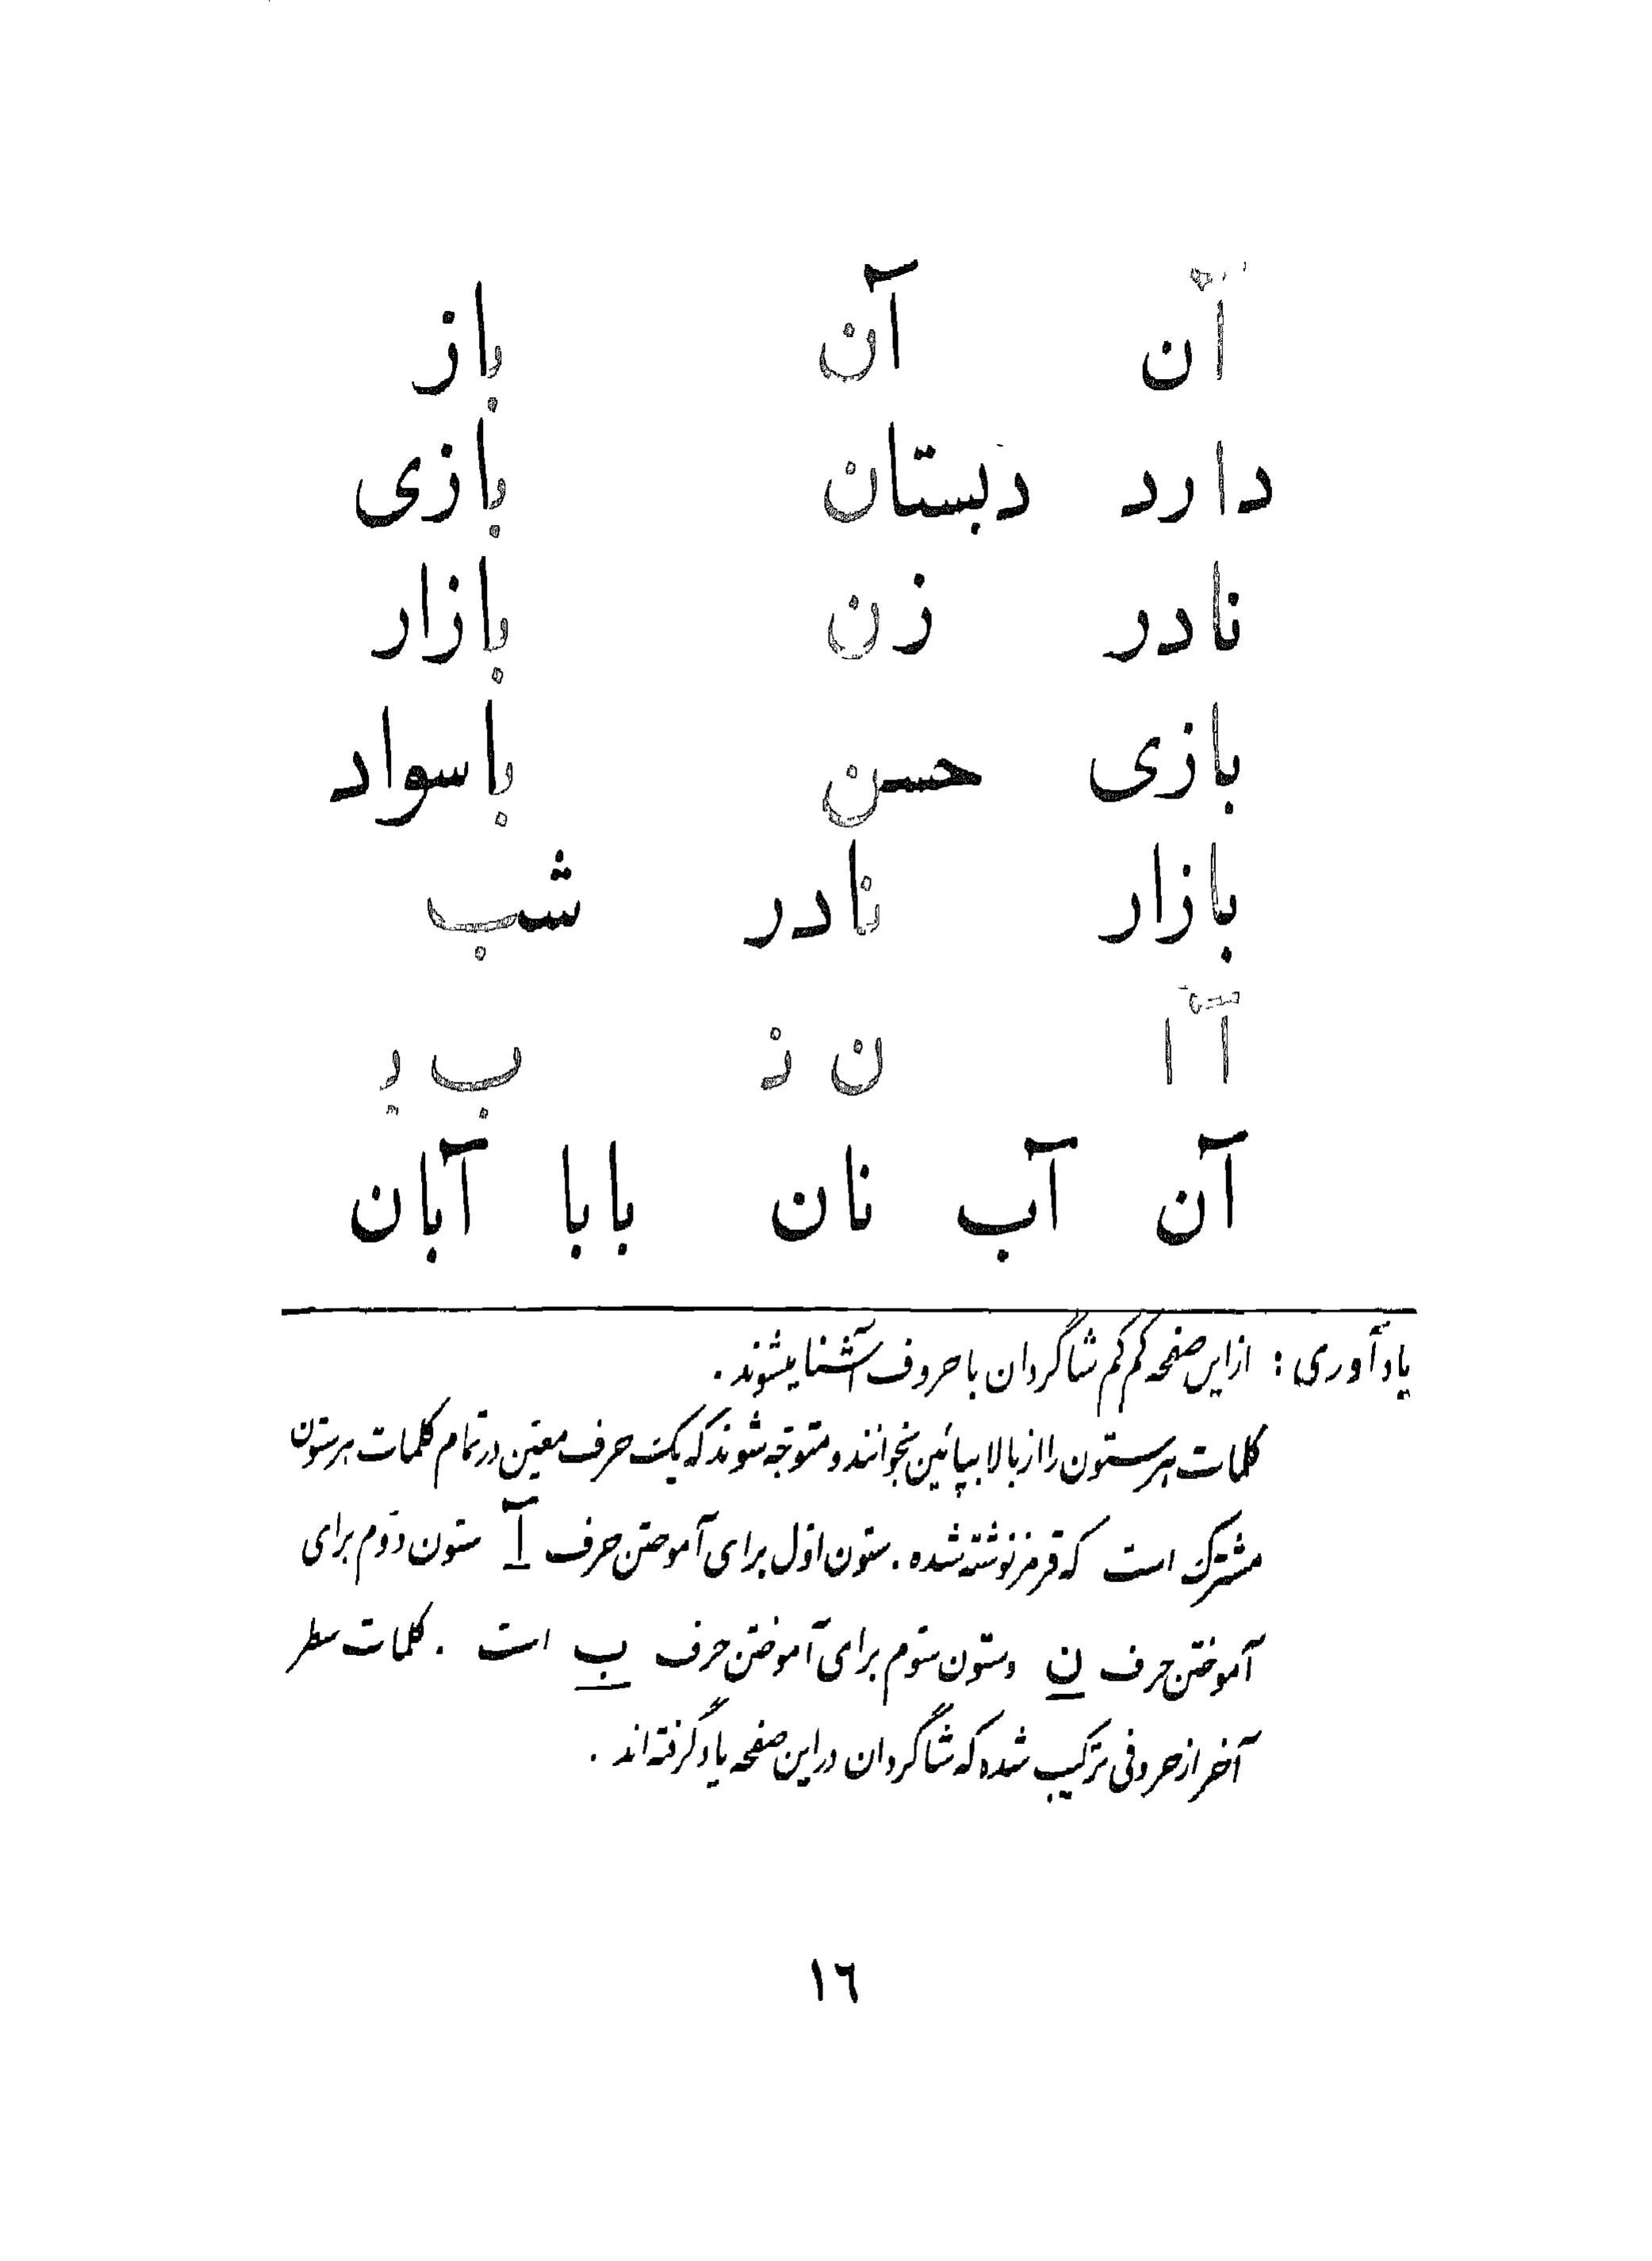 آن آن باز
دارد دبستان بازی
نادر زن بازار
بازی حسن باسواد
بازار نادر شب
آ ا ن نـ ب بـ
آن آب نان بابا آبان
یادآوری : از این صفحه کم کم شاگردان با حروف آشنا میشوند .
کلمات هر ستون را از بالا بپائین بخوانند و متوجّه شوند که یک حرف معیّن در تمام کلمات هر ستون
مشترک است که قرمز نوشته شده . ستون اوّل برای آموختن حرف آ ستون دوّم برای
آموختن حرف ن و ستون سوّم برای آموختن حرف ب است . کلمات سطر
آخر از حروفی ترکیب شده که شاگردان در این صفحه یاد گرفته‌اند .
١٦